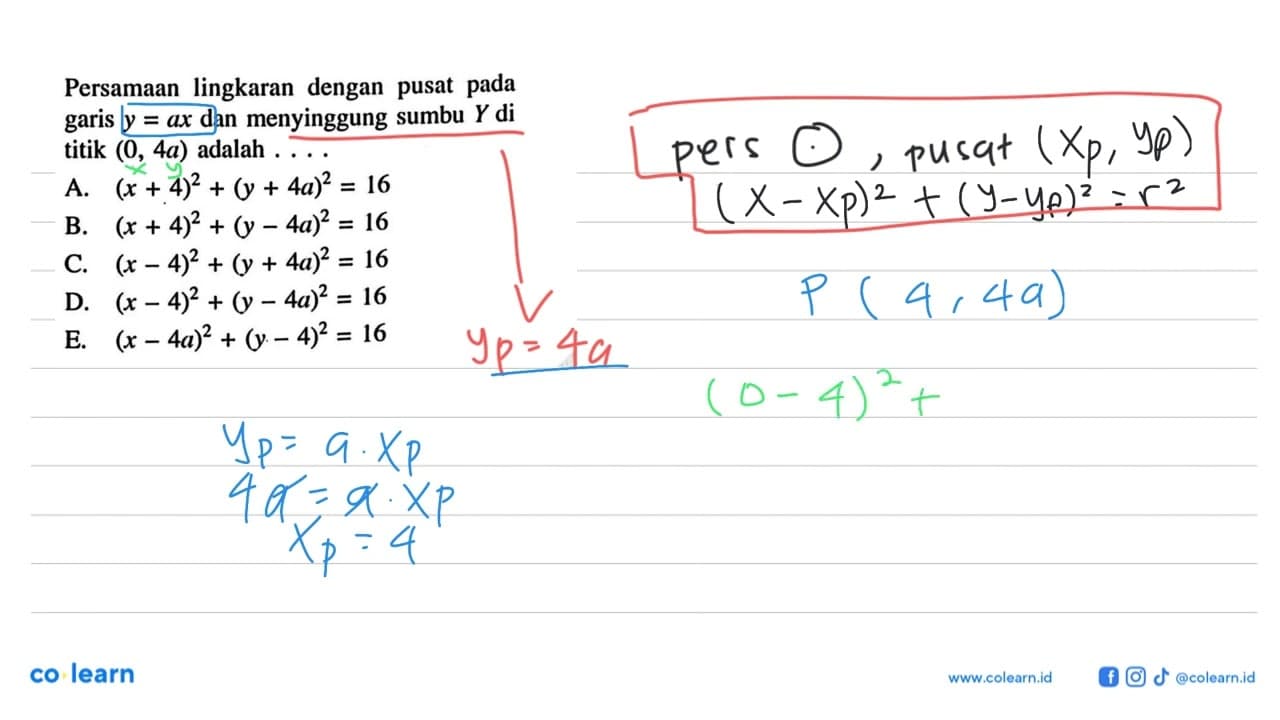 Persamaan lingkaran dengan pusat pada
garis y = ax dan menyinggung sumbu Y di
titik (0, 4a) adalah . . . .
x y
A. (x + 4)² + (y + 4a)² = 16
B. (x + 4)² + (y – 4a)² = 16
C. (x – 4)² + (y + 4a)² = 16
D. (x – 4)² + (y – 4a)² = 16
E. (x – 4a)² + (y – 4)² = 16
pers ⊙, pusat (xp, yp)
(x - xp)² + (y - yp)² = r²
P (4, 4a)
yp = 4a
(0 - 4)² +
yp = a . xp
4a = a . xp
xp = 4
co learn
www.colearn.id
@colearn.id